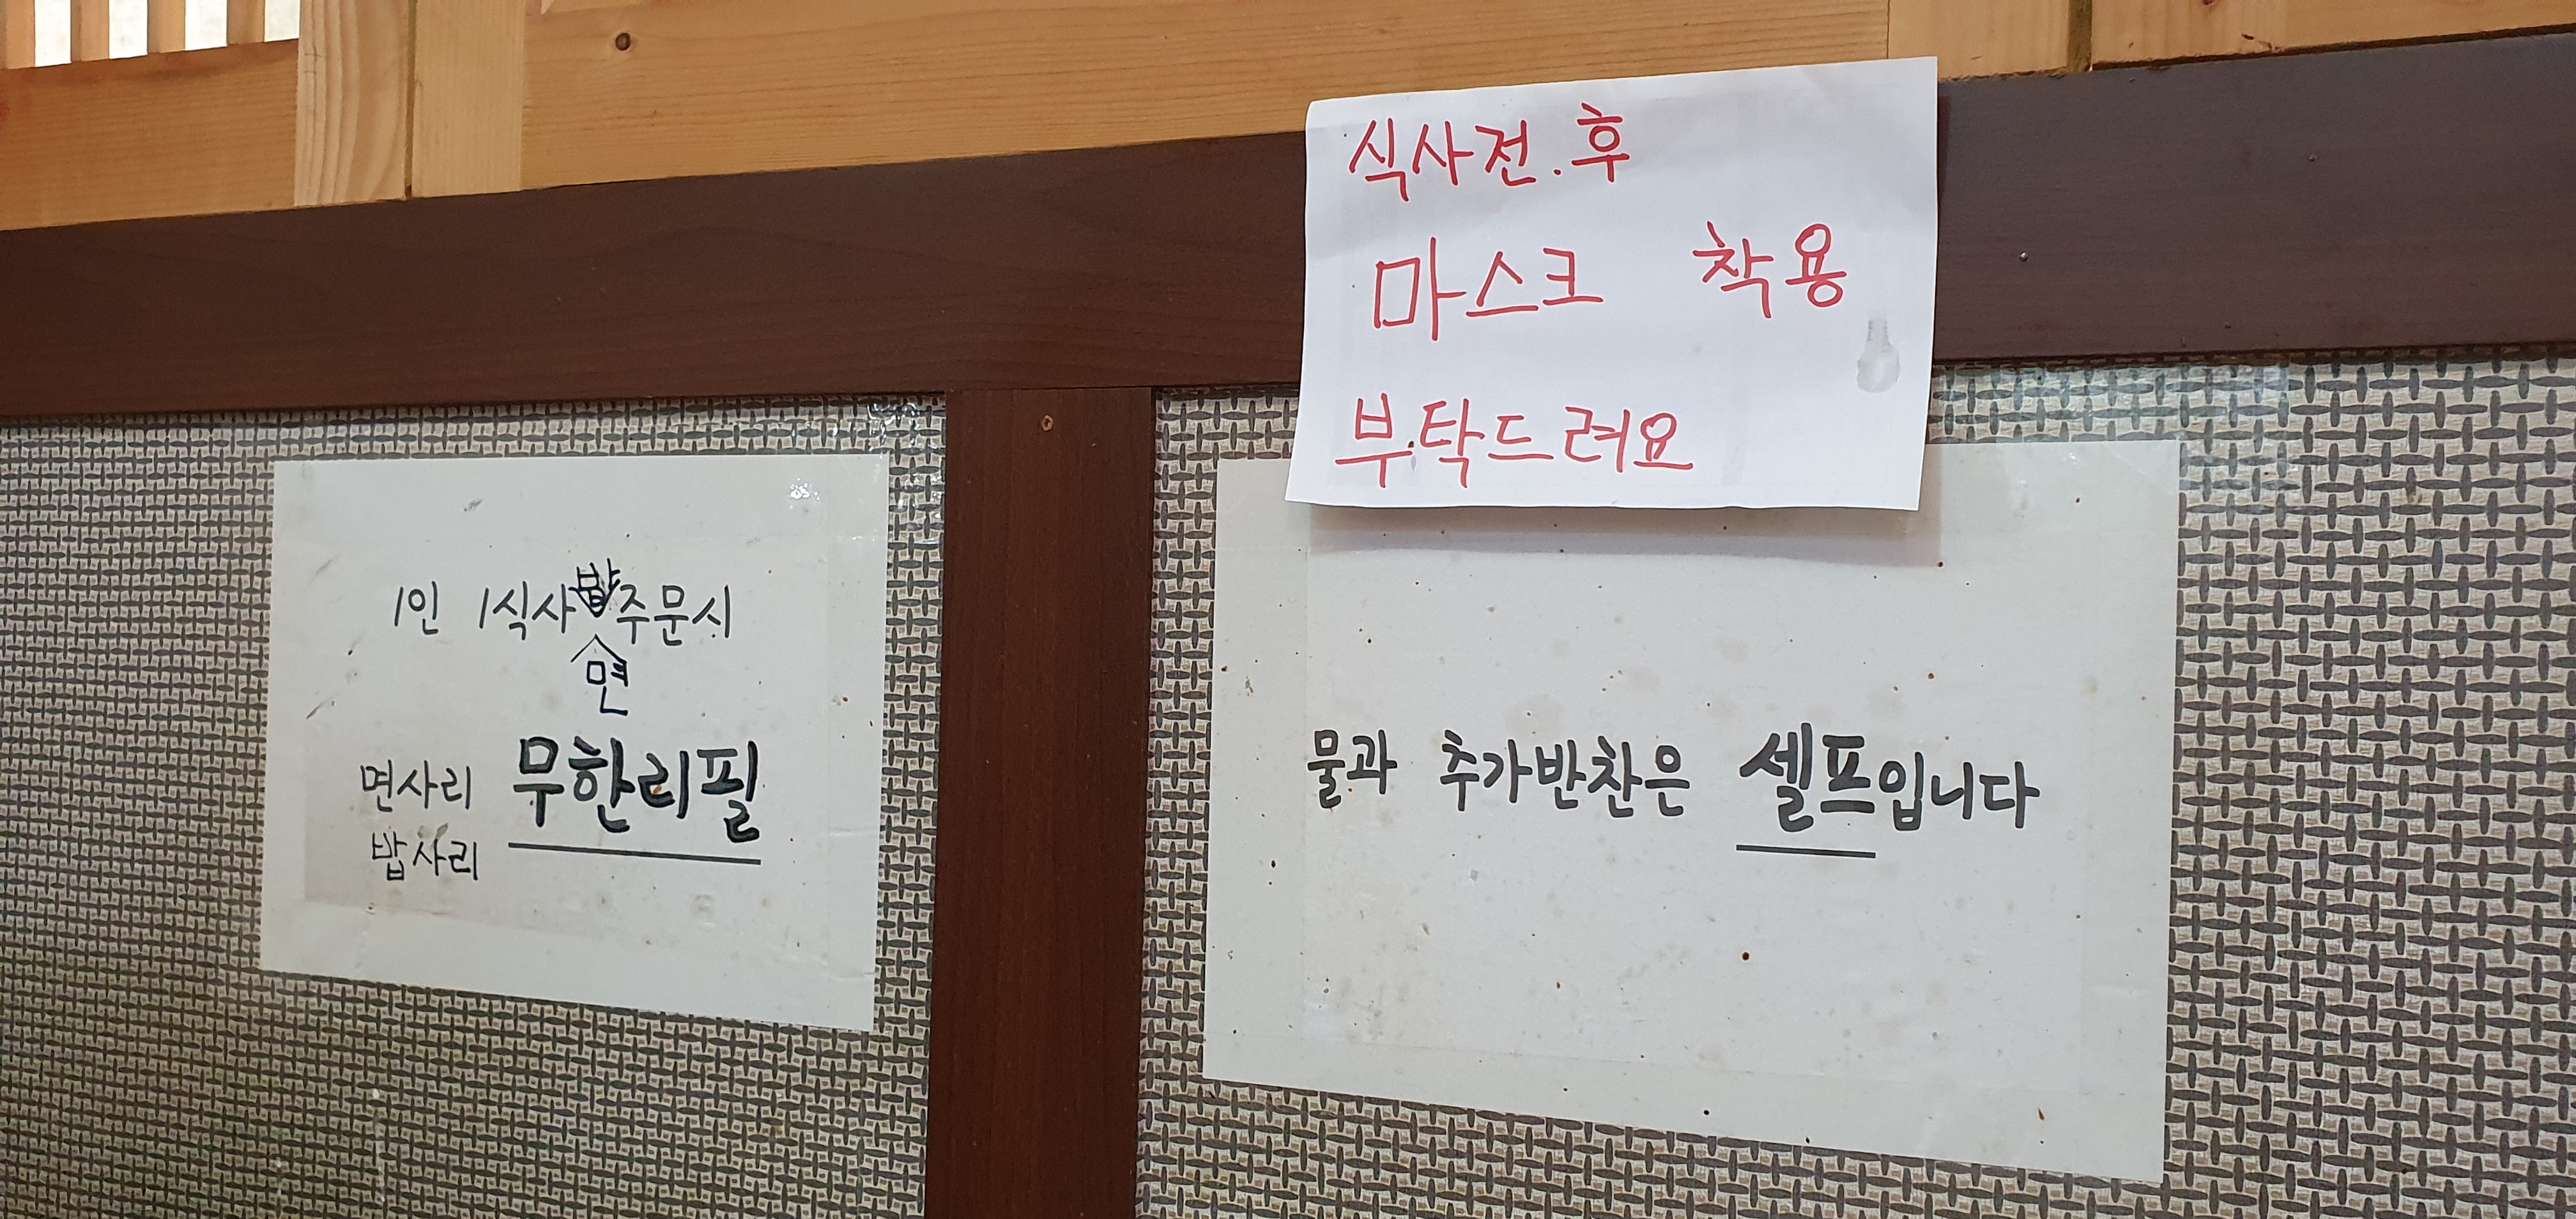 식사전.후
마스크 착용
부탁드려요
1인 1식사 밥 주문시
면
면사리 무한리필
밥사리
물과 추가반찬은 셀프입니다